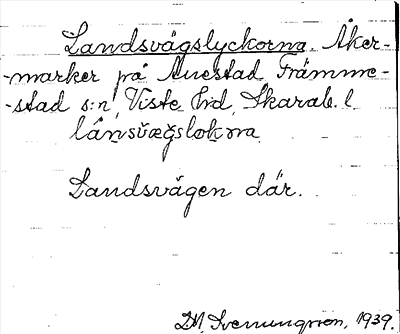 Landsvägslyckorna. Åker-
-marker på Anestad Främme-
-stad s:n, Viste hd, Skarab. l.
lánsvægslokṃa
Landsvägen där.
1939.